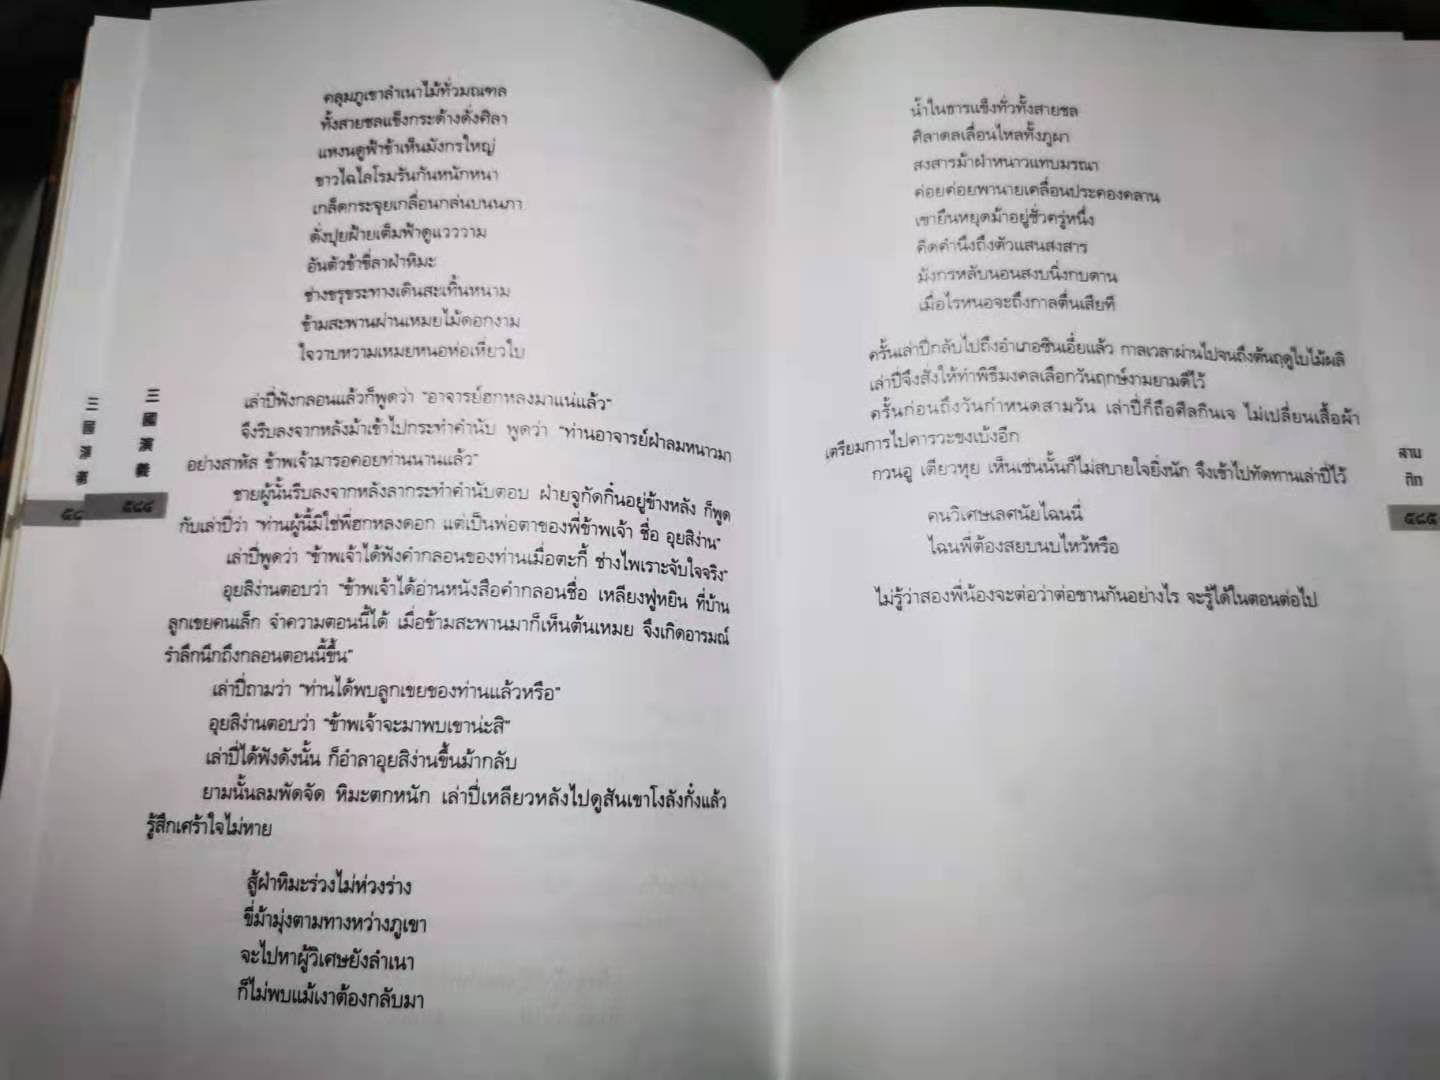 คลุมภูเขาลำเนาไม้ทั่วมณฑล
ทั้งสายชลแข็งกระด้างดั่งศิลา
แหงนดูฟ้าข้าเห็นมังกรใหญ่
ขาวไฉไลโรมรันกันหนักหนา
เกล็ดกระจุยเกลื่อนกล่นบนนภา
ดั่งปุยฝ้ายเต็มฟ้าดูแวววาม
อันตัวข้าขี่ลาฝ่าหิมะ
ช่างขรุขระทางเดินสะเทิ้นหนาม
ข้ามสะพานผ่านเหมยไม้ดอกงาม
ใจวาบหวามเหมยหนอห่อเหี่ยวใบ
เล่าปี่ฟังกลอนแล้วก็พูดว่า "อาจารย์ฮกหลงมาแน่แล้ว"
จึงรีบลงจากหลังม้าเข้าไปกระทำคำนับ พูดว่า "ท่านอาจารย์ฝ่าลมหนาวมา
อย่างสาหัส ข้าพเจ้ามารอคอยท่านนานแล้ว"
ชายผู้นั้นรีบลงจากหลังลากระทำคำนับตอบ ฝ่ายจูกัดกิ๋นอยู่ข้างหลัง ก็พูด
กับเล่าปี่ว่า "ท่านผู้นี้มิใช่พี่ฮกหลงดอก แต่เป็นพ่อตาของพี่ข้าพเจ้า ชื่อ อุยสิง่าน"
เล่าปี่พูดว่า "ข้าพเจ้าได้ฟังคำกลอนของท่านเมื่อตะกี้ ช่างไพเราะจับใจจริง"
อุยสิง่านตอบว่า "ข้าพเจ้าได้อ่านหนังสือคำกลอนชื่อ เหลียงฟู่หยิน ที่บ้าน
ลูกเขยคนเล็ก จำความตอนนี้ได้ เมื่อข้ามสะพานมาก็เห็นต้นเหมย จึงเกิดอารมณ์
รำลึกนึกถึงกลอนตอนนี้ขึ้น"
เล่าปี่ถามว่า "ท่านได้พบลูกเขยของท่านแล้วหรือ"
อุยสิง่านตอบว่า "ข้าพเจ้าจะมาพบเขาน่ะสิ"
เล่าปี่ได้ฟังดังนั้น ก็อำลาอุยสิง่านขึ้นม้ากลับ
ยามนั้นลมพัดจัด หิมะตกหนัก เล่าปี่เหลียวหลังไปดูสันเขาโงลังกั๋งแล้ว
รู้สึกเศร้าใจไม่หาย
สู้ฝ่าหิมะร่วงไม่ห่วงร่าง
ขี่ม้ามุ่งตามทางหว่างภูเขา
จะไปหาผู้วิเศษยังลำเนา
ก็ไม่พบแม้เงาต้องกลับมา
三國演義
๕๘๔
๕๘
น้ำในธารแข็งทั่วทั้งสายชล
ศิลาดลเลื่อนไหลทั้งภูผา
สงสารม้าฝ่าหนาวแทบมรณา
ค่อยค่อยพานายเคลื่อนประคองคลาน
เขายืนหยุดม้าอยู่ชั่วครู่หนึ่ง
คิดคำนึงถึงตัวแสนสงสาร
มังกรหลับนอนสงบนิ่งกบดาน
เมื่อไรหนอจะถึงกาลตื่นเสียที
ครั้นเล่าปี่กลับไปถึงอำเภอซินเอี๋ยแล้ว กาลเวลาผ่านไปจนถึงต้นฤดูใบไม้ผลิ
เล่าปี่จึงสั่งให้ทำพิธีมงคลเลือกวันฤกษ์งามยามดีไว้
ครั้นก่อนถึงวันกำหนดสามวัน เล่าปี่ก็ถือศีลกินเจ ไม่เปลี่ยนเสื้อผ้า
เตรียมการไปคารวะขงเบ้งอีก
กวนอู เตียวหุย เห็นเช่นนั้นก็ไม่สบายใจยิ่งนัก จึงเข้าไปทัดทานเล่าปี่ไว้
คนวิเศษเลศนัยไฉนนี่
ไฉนพี่ต้องสยบนบไหว้หรือ
ไม่รู้ว่าสองพี่น้องจะต่อว่าต่อขานกันอย่างไร จะรู้ได้ในตอนต่อไป
สาม
ก๊ก
๕๘๕